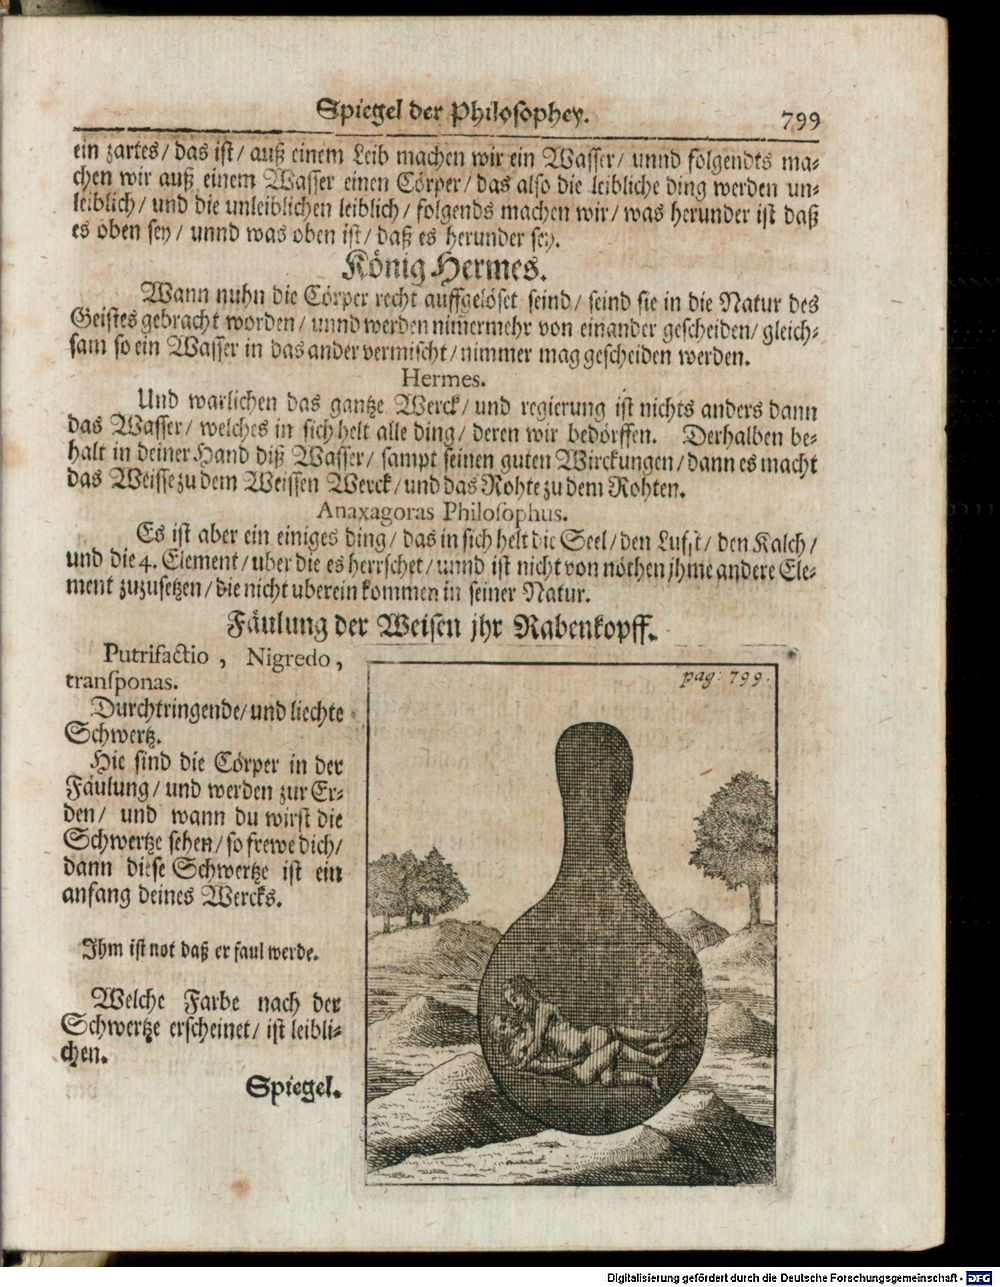 Spiegel der Philosophey. 799
ein zartes/ das ist/ auß einem Leib machen wir ein Wasser/ unnd folgendts ma-
chen wir auß einem Wasser einen Cörper/ das also die leibliche ding werden un-
leiblich/ und die unleiblichen leiblich/ folgends machen wir/ was herunder ist daß
es oben sey/ unnd was oben ist/ daß es herunder sey.
König Hermes.
Wann nuhn die Cörper recht auffgelöset seind/ seind sie in die Natur des
Geistes gebracht worden/ unnd werden nim̃ermehr von einander gescheiden/ gleich-
sam so ein Wasser in das ander vermischt/ nimmer mag gescheiden werden.
Hermes.
Und warlichen das gantze Werck/ und regierung ist nichts anders dann
das Wasser/ welches in sich helt alle ding/ deren wir bedörffen. Derhalben be-
halt in deiner Hand diß Wasser/ sampt seinen guten Wirckungen/ dann es macht
das Weisse zu dem Weissen Werck/ und das Rohte zu dem Rohten.
Anaxagoras Philosophus.
Es ist aber ein einiges ding/ das in sich helt die Seel/ den Lufft/ den Kalch/
und die 4. Element/ uber die es herrschet/ unnd ist nicht von nöthen jhme andere Ele-
ment zuzusetzen/ die nicht uberein kommen in seiner Natur.
Fäulung der Weisen jhr Rabenkopff.
Putrifactio, Nigredo,
transponas.
Durchtringende/ und liechte
Schwertz.
Hie sind die Cörper in der
Fäulung/ und werden zur Er-
den/ und wann du wirst die
Schwertze sehen/ so frewe dich/
dann diese Schwertze ist ein
anfang deines Wercks.
Ihm ist not daß er faul werde.
Welche Farbe nach der
Schwertze erscheinet/ ist leibli-
chen.
Spiegel.
pag: 799.
Digitalisierung gefördert durch die Deutsche Forschungsgemeinschaft - DFG